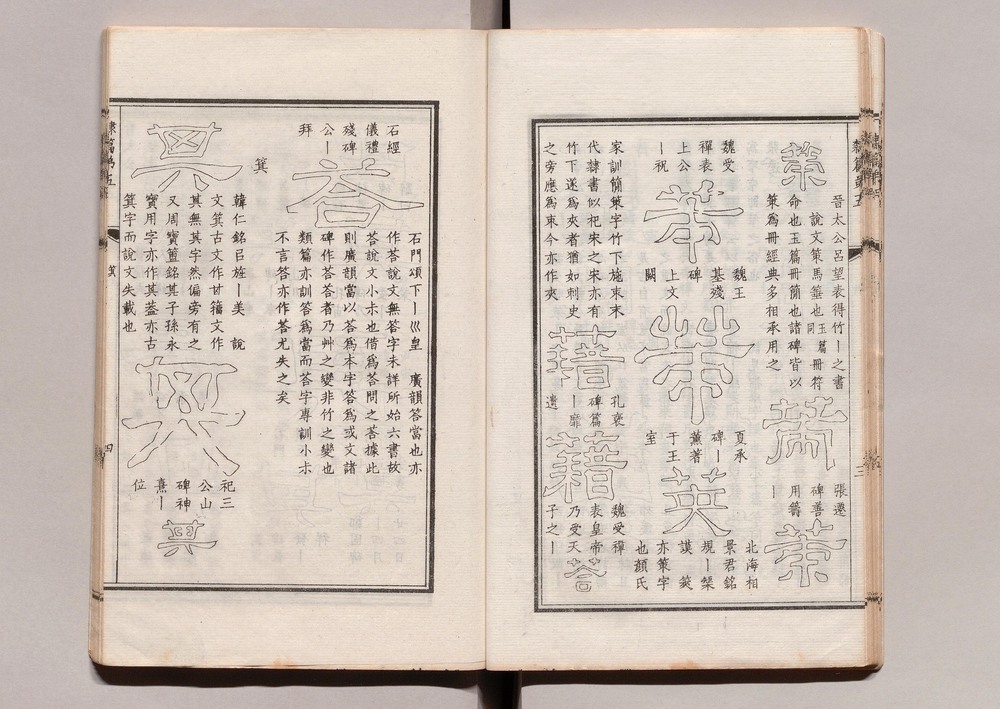 隸篇第五
策
晉太公呂望表得竹丨之書
說文策馬箠也玉篇同冊符
命也玉篇冊簡也諸碑皆以
策爲冊經典多相承用之
張遷
碑善
用籌
丨
魏受
禪表
上公
丨祝
魏王
基殘
碑
上文
闕
夏承
碑丨
薰著
于王
室
英
北海相
景君銘
規丨榘
謨 筴
亦策字
也顏氏
家訓簡策字竹下施朿末
代隸書似杞宋之宋亦有
竹下遂爲夾者猶如刺史
之旁應爲朿今亦作夾
藉
孔褒
碑篇
丨靡
遺
籍
魏受禪
表皇帝
乃受天
子之丨
荅
石經
儀禮
殘碑
公丨
拜
荅
石門頌下丨巛皇 廣韻答當也亦
作荅說文無答字未詳所始六書故
荅說文小尗也借爲荅問之荅據此
則廣韻當以荅爲本字答爲或文諸
碑作荅荅者乃艸之變非竹之變也
類篇亦訓答爲當而荅字專訓小尗
不言答亦作荅尤失之矣
箕
其
韓仁銘㠯旌丨美 說
文箕古文作𠀠籒文作
其無其字然偏旁有之
又周寶簠銘其子孫永
寶用字亦作其蓋亦古
箕字而說文失載也
祀三
公山
碑神
熹丨
位
其
箕
四